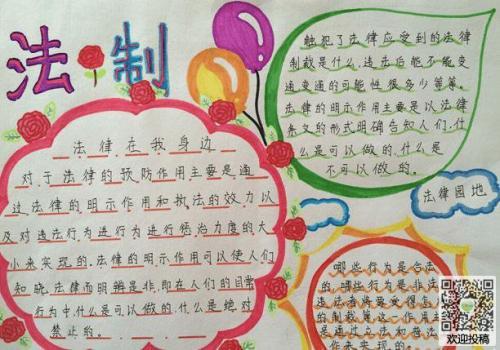 法制
法律在我身边
对于法律的预防作用主要是通
过法律的明示作用和执法的效力以
及对违法行为进行为进行惩治力度的大
小来实现的.法律的明示作用可以使人们
知晓法律而明辨是非,即在人们的日常
行为中,什么是可以做的,什么是绝对
禁止的。
触犯了法律应受到的法律
制裁是什么,违法后能不能变
通变通的可能性很多少等等。
法律的明示作用主要是以法律
条文的形式明确告知人们,什
么是可以做的,什么是
不可以做的。
法律园地
哪些行为是合法
的.哪些行为是非法
违法者将要受得怎
的制裁等这一作用主
是通过立法和普法
作来实现的。
欢迎投稿